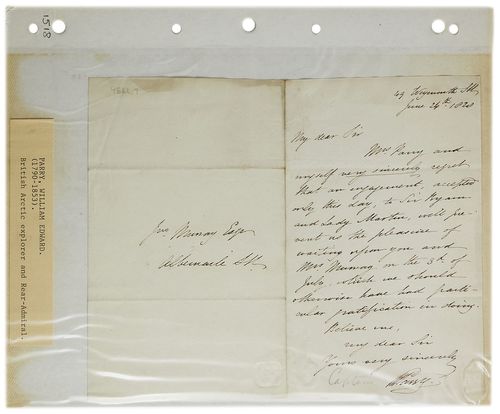 1518
PARRY, WILLIAM EDWARD.
(1790-1853).
British Arctic explorer and Rear-Admiral.
Jno Murray Esqr
Albemarle St.
49 Weymouth St.
June 24th 1828
My dear Sir
Mrs Parry and
myself very sincerely regret
that an engagement, accepted
only this day, to Sir Byam
and Lady Martin, will pre-
vent us the pleasure of
waiting upon you and
Mrs Murray on the 5th of
July, which we should
otherwise have had parti-
cular gratification in doing.
Believe me,
my dear Sir
Yours very sincerely
W Parry